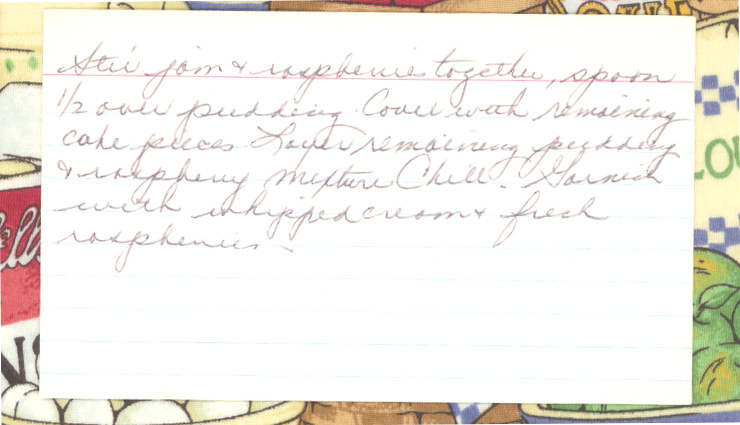 Stir jam & raspberries together, spoon
1/2 over pudding. Cover with remaining
cake pieces. Layer remaining pudding
& raspberry mixture Chill. Garnish
with whipped cream & fresh
raspberries.